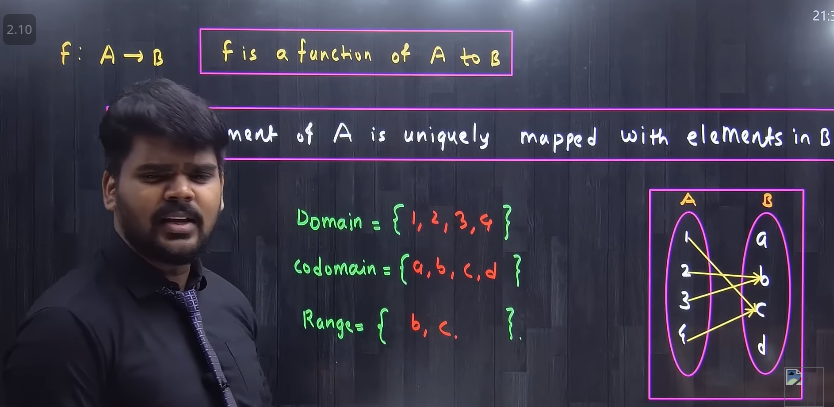 2.10
21:3
f: A → B
f is a function of A to B
ment of A is uniquely mapped with elements in B
Domain = { 1, 2, 3, 4 }
codomain = { a, b, c, d }
Range = { b, c. }.
A B
1 a
2 b
3 c
4 d